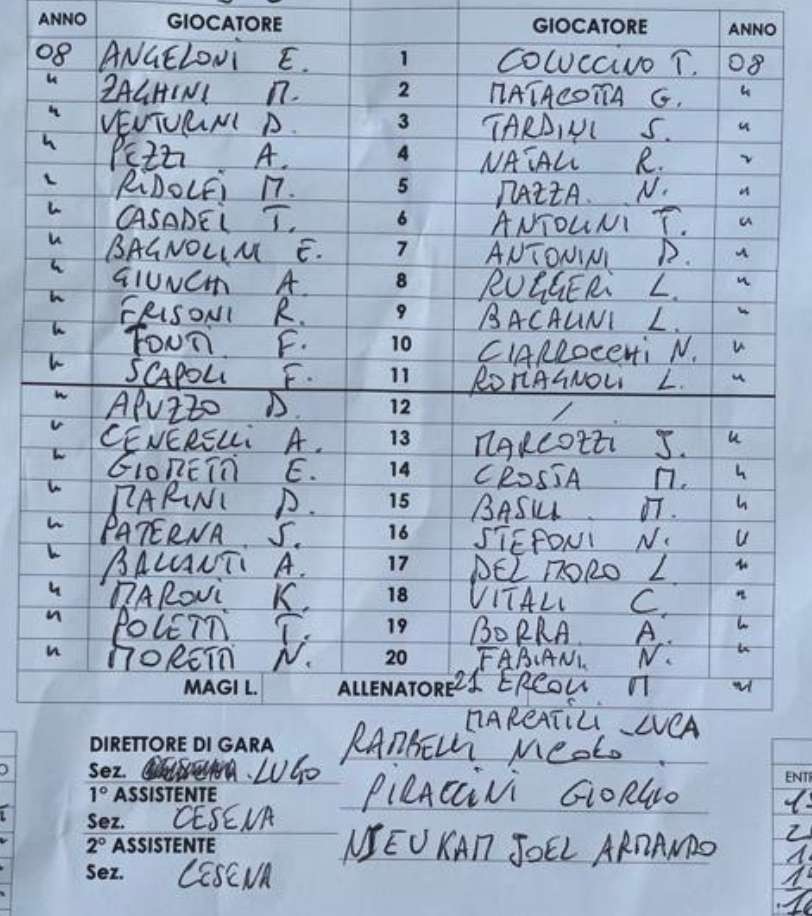 ANNO GIOCATORE GIOCATORE ANNO
08 ANGELONI E. 1 COLUCCINO T. 08
" ZAGHINI M. 2 MATACOTTA G. "
" VENTURINI D. 3 TARDINI S. "
" PEZZI A. 4 NATALI R. "
" RIDOLFI M. 5 MAZZA N. "
" CASADEI T. 6 ANTOLINI T. "
" BAGNOLINI E. 7 ANTONINI D. "
" GIUNCHI A. 8 RUGGERI L. "
" FRISONI R. 9 BACALINI L. "
" FONTI F. 10 CIARROCCHI N. "
" SCAPOLI F. 11 ROMAGNOLI L. "
" APUZZO D. 12 /
" CENERELLI A. 13 MARCOZZI J. "
" GIOMETTI E. 14 CROSTA M. "
" MARINI D. 15 BASILI M. "
" PATERNA S. 16 STEFONI N. "
" BALLANTI A. 17 DEL MORO L. "
" MARONI K. 18 VITALI C. "
" POLETTI T. 19 BORRA A. "
" MORETTI N. 20 FABIANI N. "
MAGI L. ALLENATORE 21 ERCOLI M "
MARCATILI LUCA
DIRETTORE DI GARA RAMBELLI NICOLO
Sez. LUGO
1° ASSISTENTE PIRACCINI GIORGIO
Sez. CESENA
2° ASSISTENTE NJEUKAM JOEL ARMANDO
Sez. CESENA